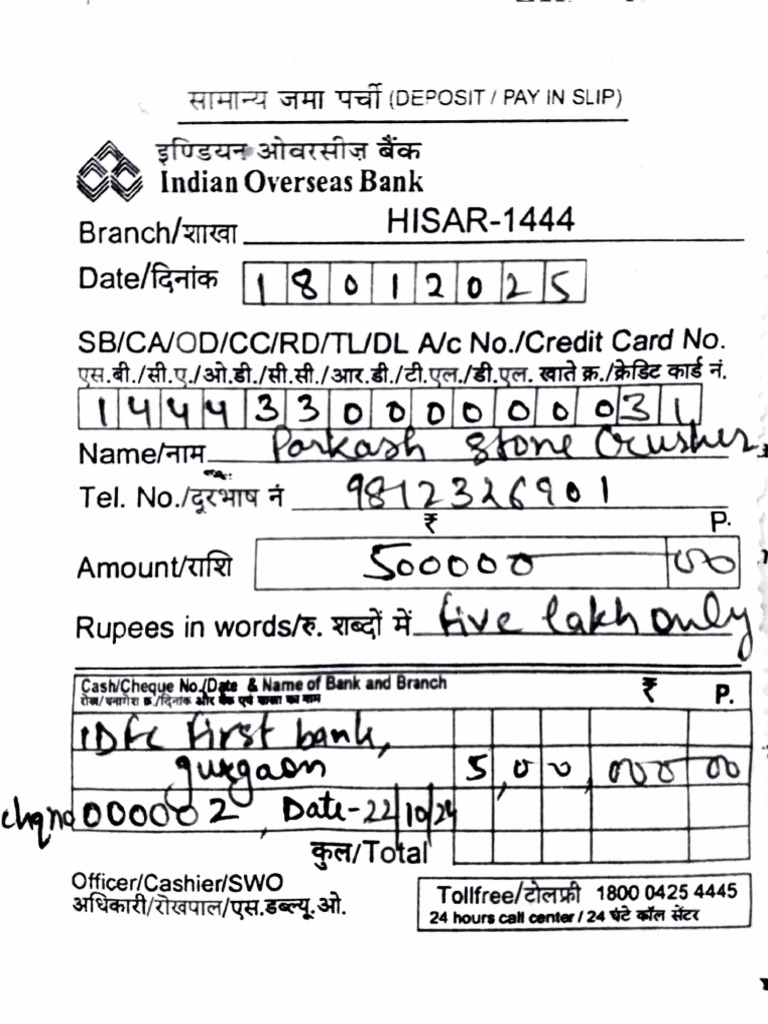 सामान्य जमा पर्ची (DEPOSIT / PAY IN SLIP)
इण्डियन ओवरसीज़ बैंक
Indian Overseas Bank
Branch/शाखा HISAR-1444
Date/दिनांक 18012025
SB/CA/OD/CC/RD/TL/DL A/c No./Credit Card No.
एस.बी./सी.ए./ओ.डी./सी.सी./आर.डी./टी.एल./डी.एल. खाते क्र./क्रेडिट कार्ड नं.
144433000000031
Name/नाम Parkash Stone Crusher
Tel. No./दूरभाष नं 9812326901
₹ P.
Amount/राशि 500000 00
Rupees in words/रु. शब्दों में five lakh only
Cash/Cheque No./Date & Name of Bank and Branch ₹ P.
रोख/धनादेश क्र./दिनांक और बैंक एवं शाखा का नाम
IDFC first bank,
gurgaon 5,00,000 00
chq no 000002, Date-22/10/24
कुल/Total
Officer/Cashier/SWO
अधिकारी/रोखपाल/एस.डब्ल्यू.ओ.
Tollfree/टोलफ्री 1800 0425 4445
24 hours call center / 24 घंटे कॉल सेंटर